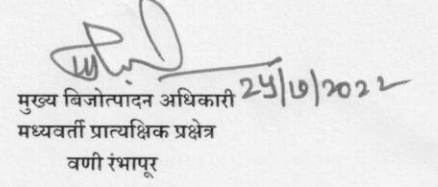 मुख्य बिजोत्पादन अधिकारी २५/७/२०२२
मध्यवर्ती प्रात्यक्षिक प्रक्षेत्र
वणी रंभापूर